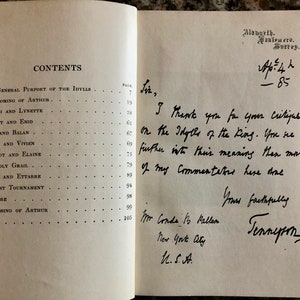 CONTENTS
GENERAL PURPORT OF THE IDYLLS . . 7
COMING OF ARTHUR
AND LYNETTE
AND ENID
AND BALAN
AND VIVIEN
AND ELAINE
HOLY GRAIL
AND ETTARRE
TOURNAMENT
OF ARTHUR
105
Aldworth,
Haslemere,
Surrey.
Apl. 4th
— 85
Sir,
I thank you for your Critique
on the Idylls of the King. You see
further into their meaning than most
of my Commentators have done
Yours faithfully
Tennyson
Mr Condé B Pallen
New York City
U.S.A